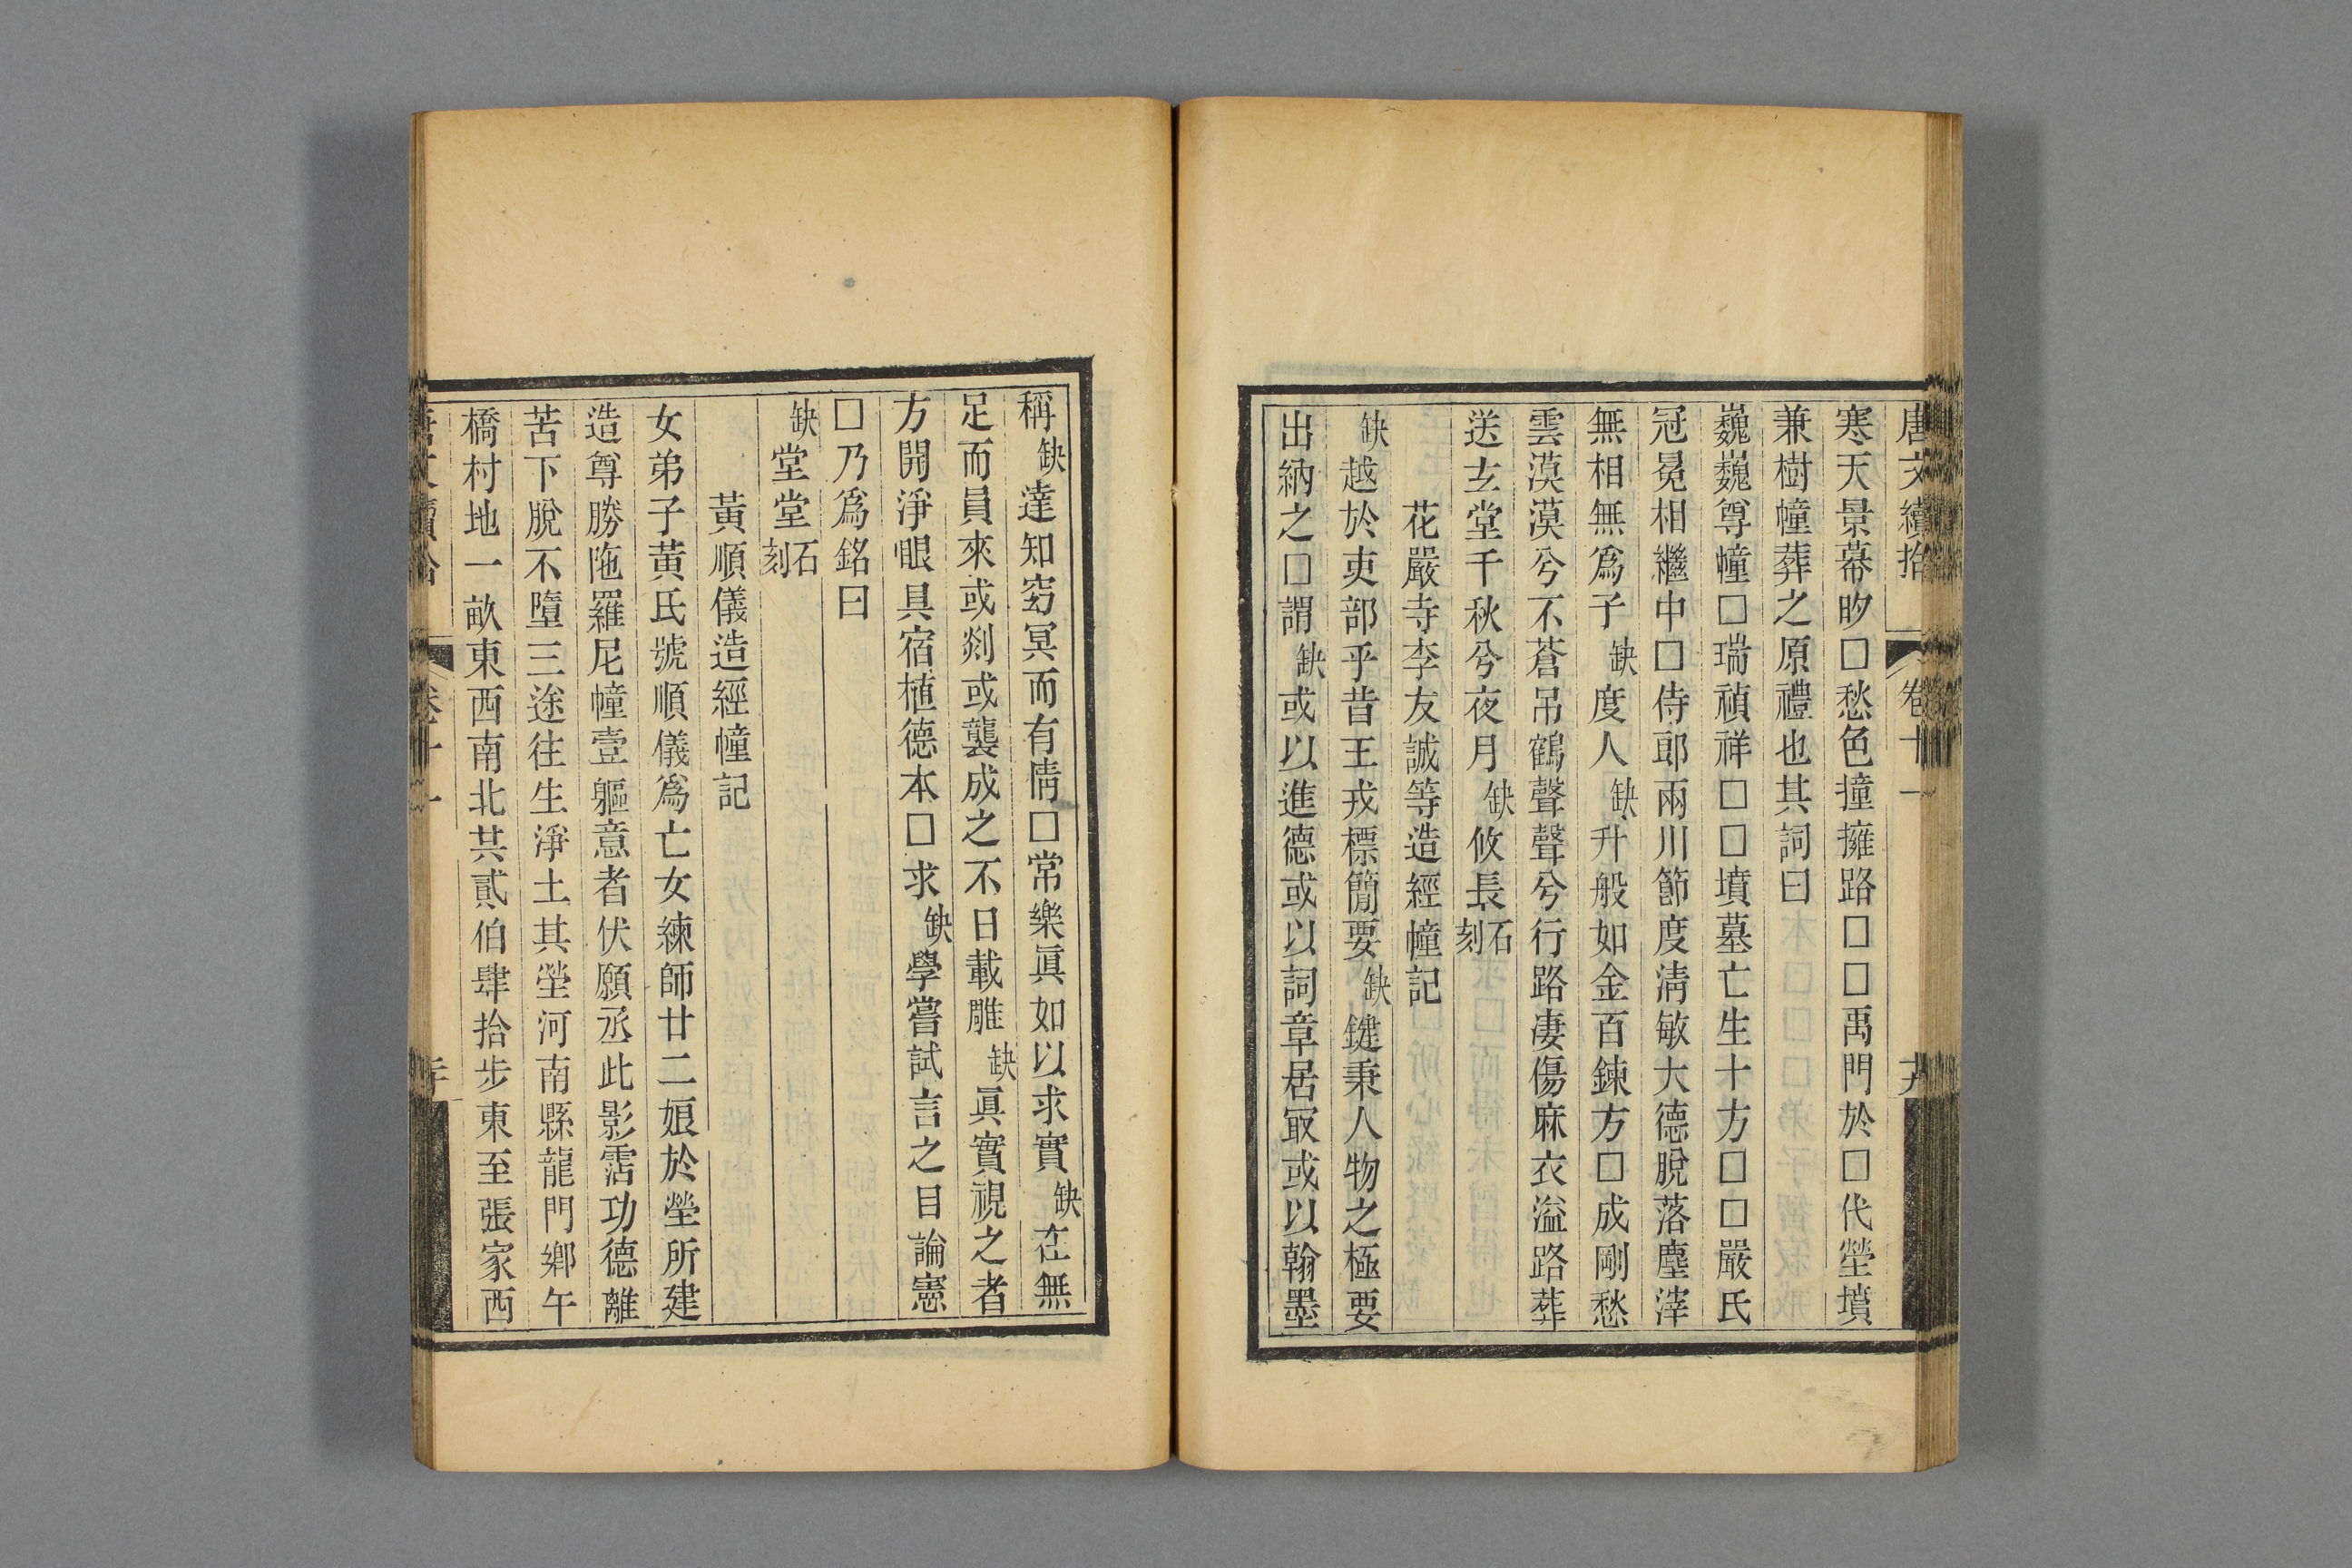 唐文續拾 卷十一 十九
寒天景幕昣□愁色撞擁路□□禹門於□代塋墳
兼樹幢葬之原禮也其詞曰
巍巍尊幢□瑞禎祥□□墳墓亡生十方□□嚴氏
冠冕相繼中□侍郎兩川節度淸敏大德脫落塵滓
無相無爲子缺度人缺升般如金百鍊方□成剛愁
雲漠漠兮不蒼吊鶴聲聲兮行路淒傷麻衣溢路葬
送玄堂千秋兮夜月缺攸長石刻
花嚴寺李友誠等造經幢記
缺越於吏部乎昔王戎標簡要缺鍵秉人物之極要
出納之□謂缺或以進德或以詞章居㝡或以翰墨
稱缺達知窈冥而有情□常樂眞如以求實缺在無
足而員來或剡或襲成之不日載雕缺眞實視之者
方開淨眼具宿植德本□求缺學嘗試言之目論憲
□乃爲銘曰
缺堂堂石刻
黃順儀造經幢記
女弟子黃氏號順儀爲亡女練師廿二娘於塋所建
造尊勝陁羅尼幢壹軀意者伏願丞此影霑功德離
苦下脫不墮三途往生淨土其塋河南縣龍門鄉午
橋村地一畝東西南北共貳伯肆拾步東至張家西
唐文續拾 卷十一